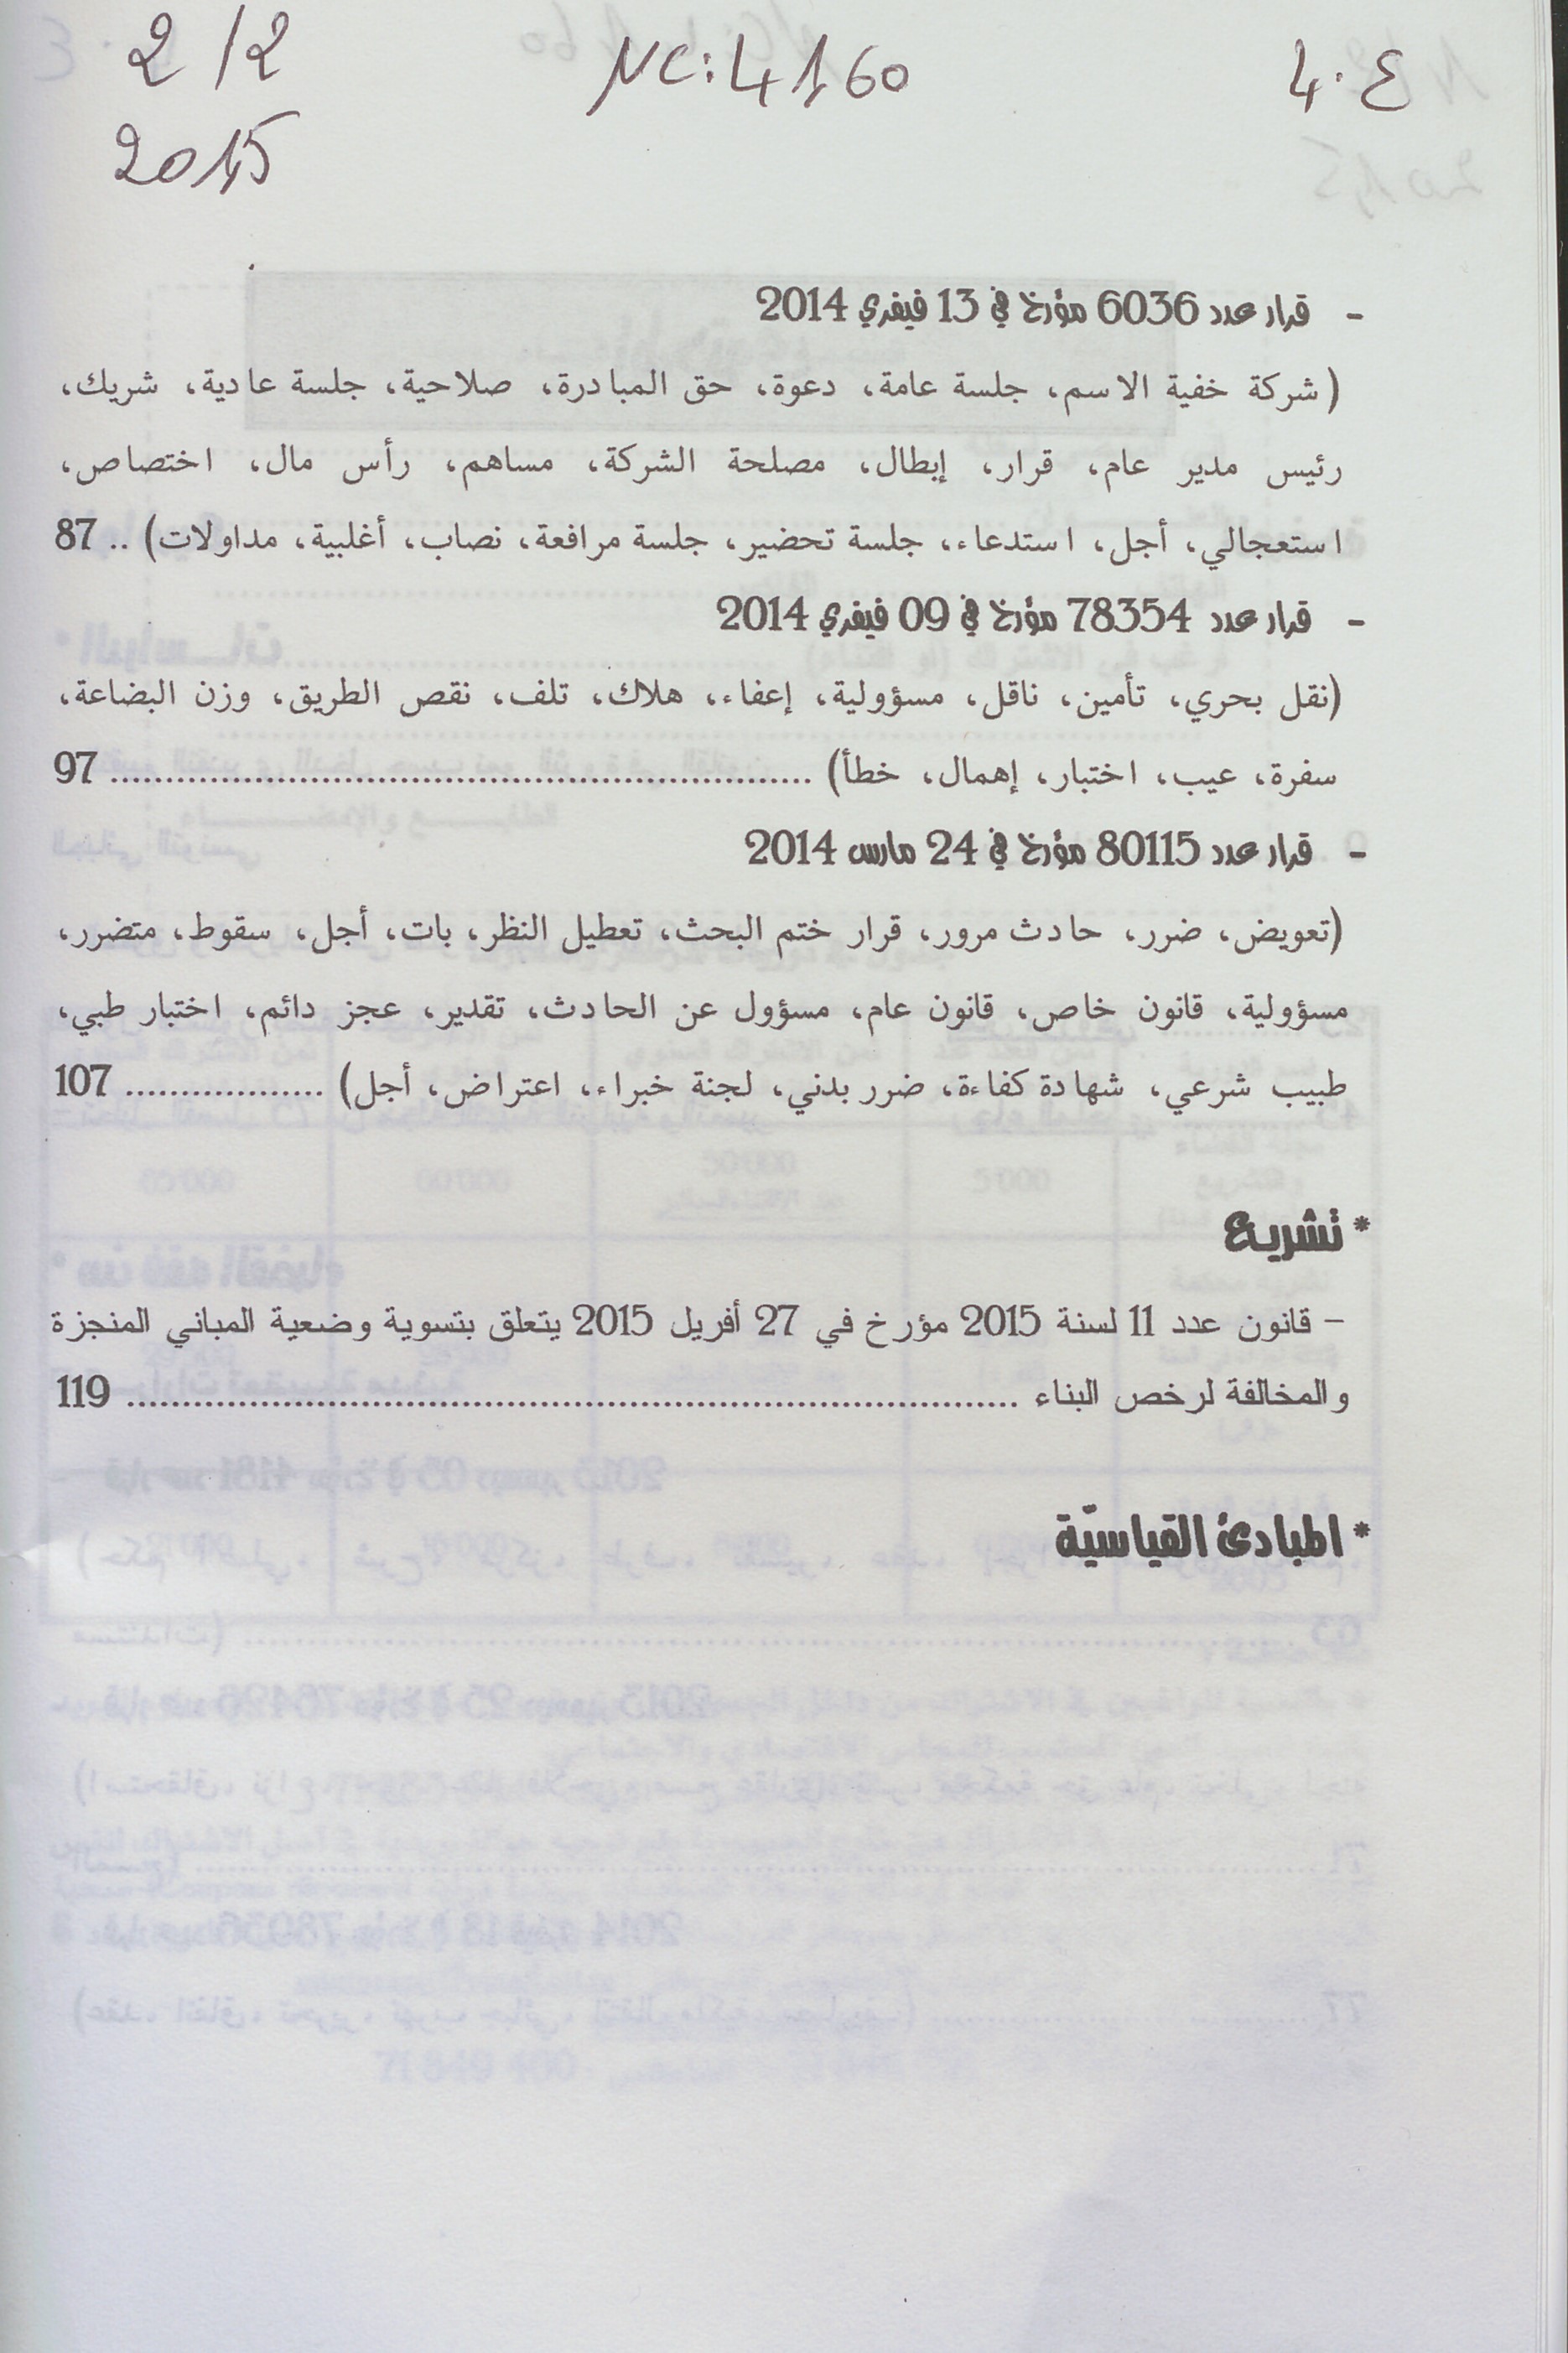 2/2
NC: 4160
4.ع
2015
- قرار عدد 6036 مؤرخ في 13 فيفري 2014
(شركة خفية الاسم، جلسة عامة، دعوة، حق المبادرة، صلاحية، جلسة عادية، شريك،
رئيس مدير عام، قرار، إبطال، مصلحة الشركة، مساهم، رأس مال، اختصاص،
استعجالي، أجل، استدعاء، جلسة تحضير، جلسة مرافعة، نصاب، أغلبية، مداولات) .. 87
- قرار عدد 78354 مؤرخ في 09 فيفري 2014
(نقل بحري، تأمين، ناقل، مسؤولية، إعفاء، هلاك، تلف، نقص الطريق، وزن البضاعة،
سفرة، عيب، اختبار، إهمال، خطأ) ............................................................... 97
- قرار عدد 80115 مؤرخ في 24 مارس 2014
(تعويض، ضرر، حادث مرور، قرار ختم البحث، تعطيل النظر، بات، أجل، سقوط، متضرر،
مسؤولية، قانون خاص، قانون عام، مسؤول عن الحادث، تقدير، عجز دائم، اختبار طبي،
طبيب شرعي، شهادة كفاءة، ضرر بدني، لجنة خبراء، اعتراض، أجل) .................. 107
* تشريع
- قانون عدد 11 لسنة 2015 مؤرخ في 27 أفريل 2015 يتعلق بتسوية وضعية المباني المنجزة
والمخالفة لرخص البناء ................................................................................ 119
* المبادئ القياسيّة